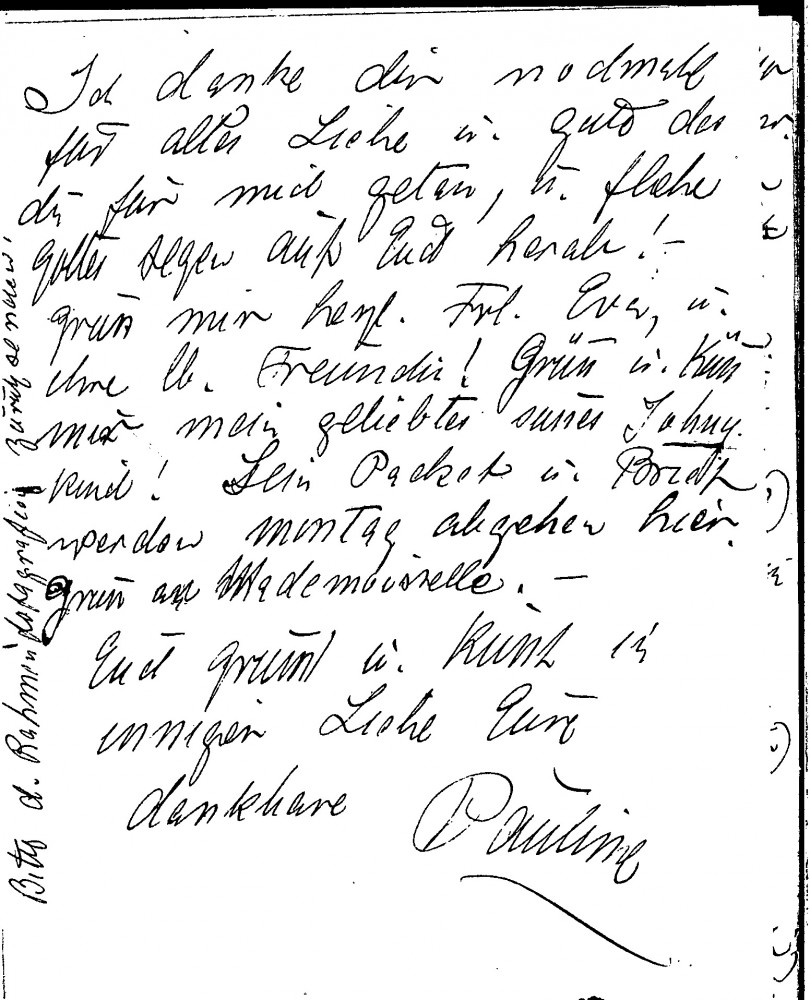 Ich danke dir nochmals
für alles Liebe u. gute das
du für mich getan, u. flehe
Gottes Segen auf Euch herab! –
grüss mir herzl. Frl. Eva, u.
ihre lb. Freundin! Grüss u. Küss
mir mein geliebtes süsses Johny
kind! Sein Packet u. Brief
werden montag abgehen hier.
Grüss an Mademoiselle. –
Euch grüsst u. küsst in
inniger Liebe Eure
dankbare Pauline
Bitte d. Rahmen fotografien zurück senden!